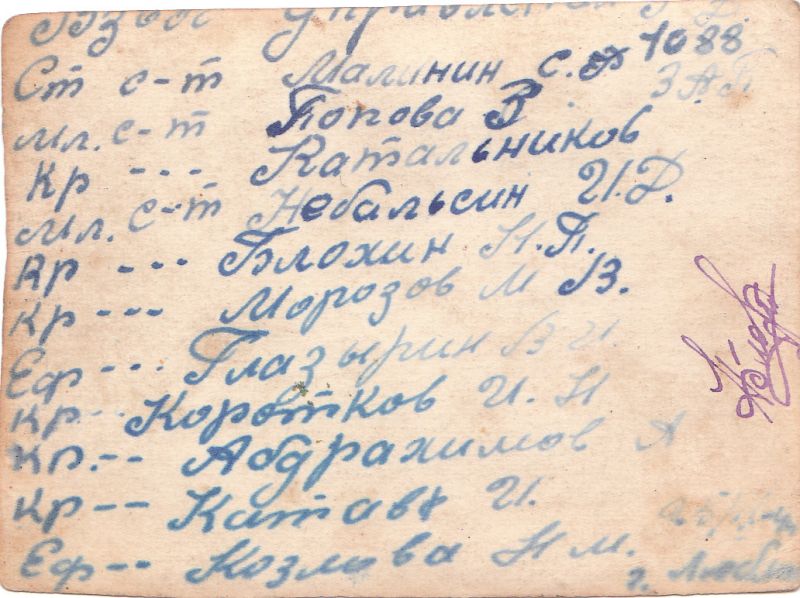 Взвод управления
Ст с-т Малинин С.Ф 1088
мл. с-т Попова В. ЗАП
Кр --- Катальников
мл. с-т Небальсин И.Д.
Кр --- Блохин Н.П.
Кр --- Морозов М В.
Еф --- Глазырин В И.
Кр -- Коротков И. Н
Кр. -- Абдрахимов А
Кр -- Катаве И.
Еф -- Козлова Н М.
г.